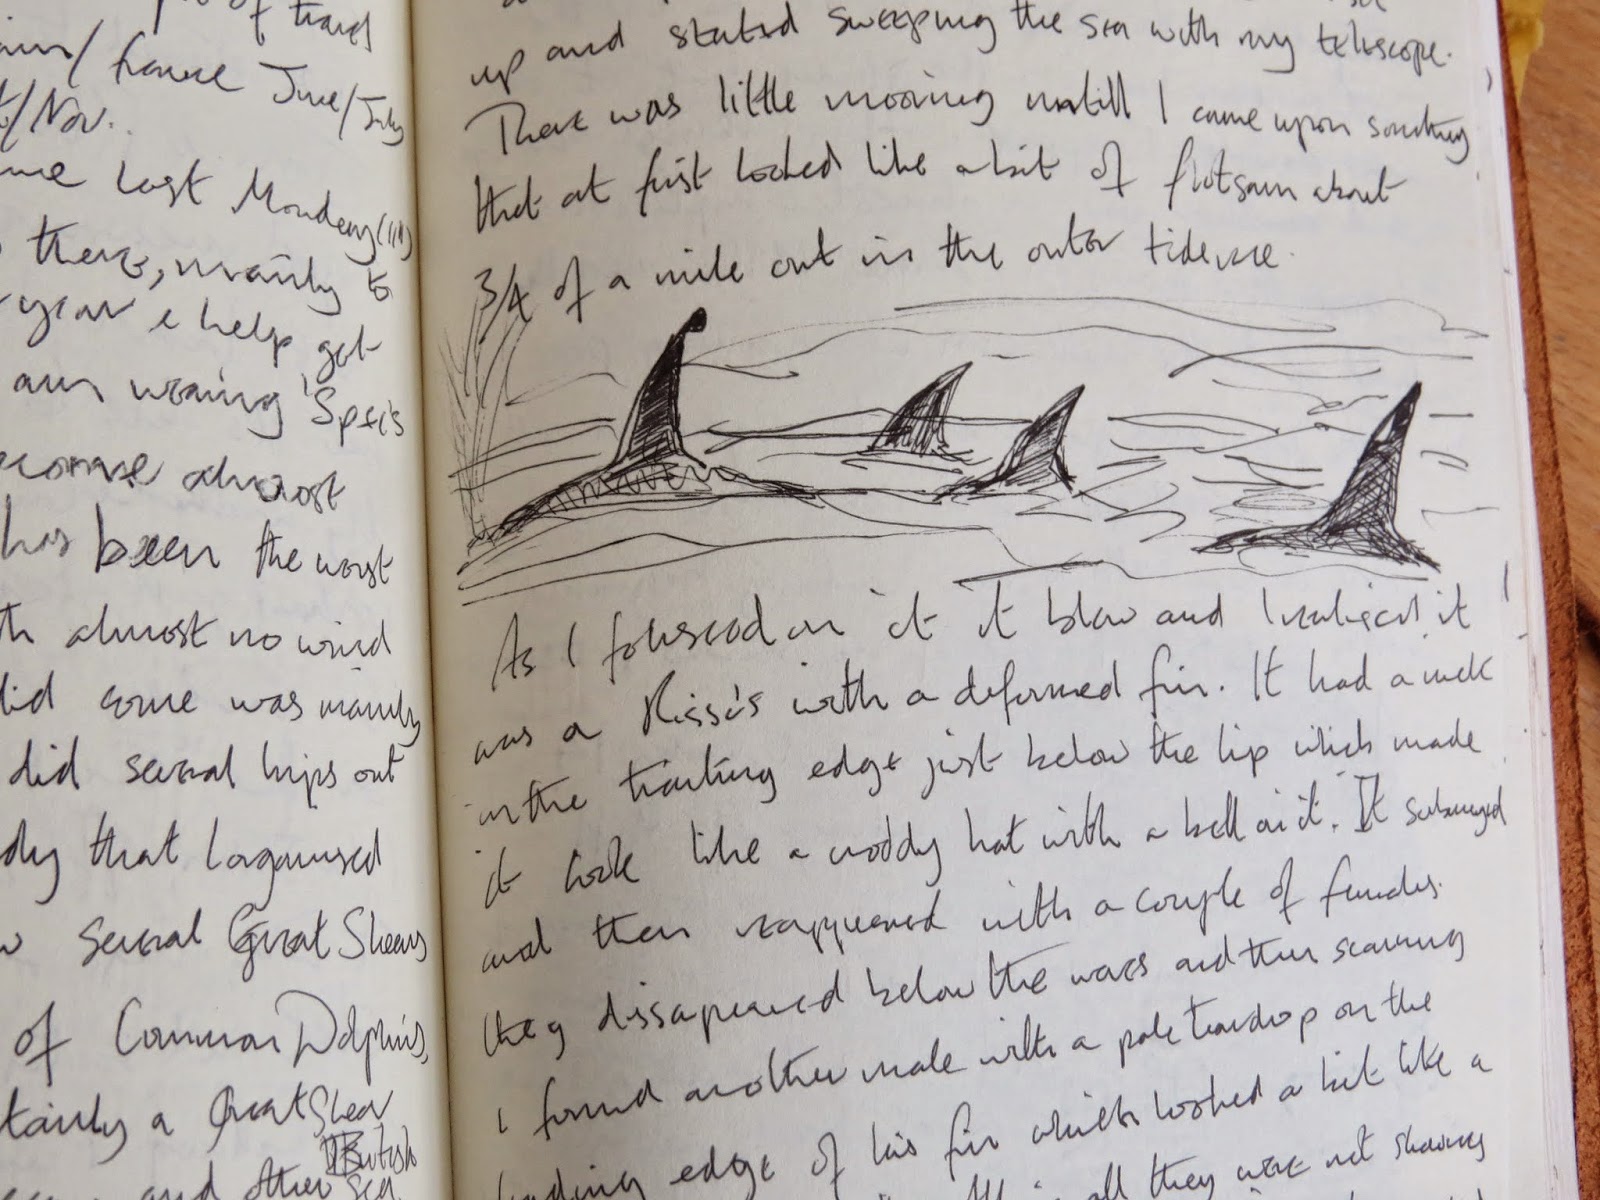 of travel
/ france June/July
/Nov.
last Monday
there, mainly to
year & help get
am wearing 'Specs
almost
has been the worst
almost no wind
did come was mainly
did several trips out
that I organised
several Great Shears
of Common Dolphins,
a Great Shear
British
and other Sea
up and stated sweeping the sea with my teliscope.
There was little mooving untill I came upon somthing
that at first looked like a bit of flotsam about
3/4 of a mile out in the outer tiderace.
As I foucused on it it blew and I realised it
was a Risso's with a deformed fin. It had a nick
in the trailing edge just below the tip which made
it look like a noddy hat with a bell on it. It submerged
and then reappeared with a couple of females.
they dissapeared below the waves and then scanning
I found another male with a pale teardrop on the
leading edge of his fin which looked a bit like a
all they were not showing